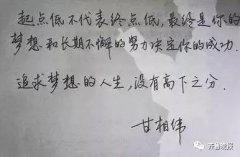 起点低不代表终点低,最终是你的
梦想和长期不懈的努力决定你的成功.
追求梦想的人生,没有高下之分.
甘相伟
齐鲁晚报